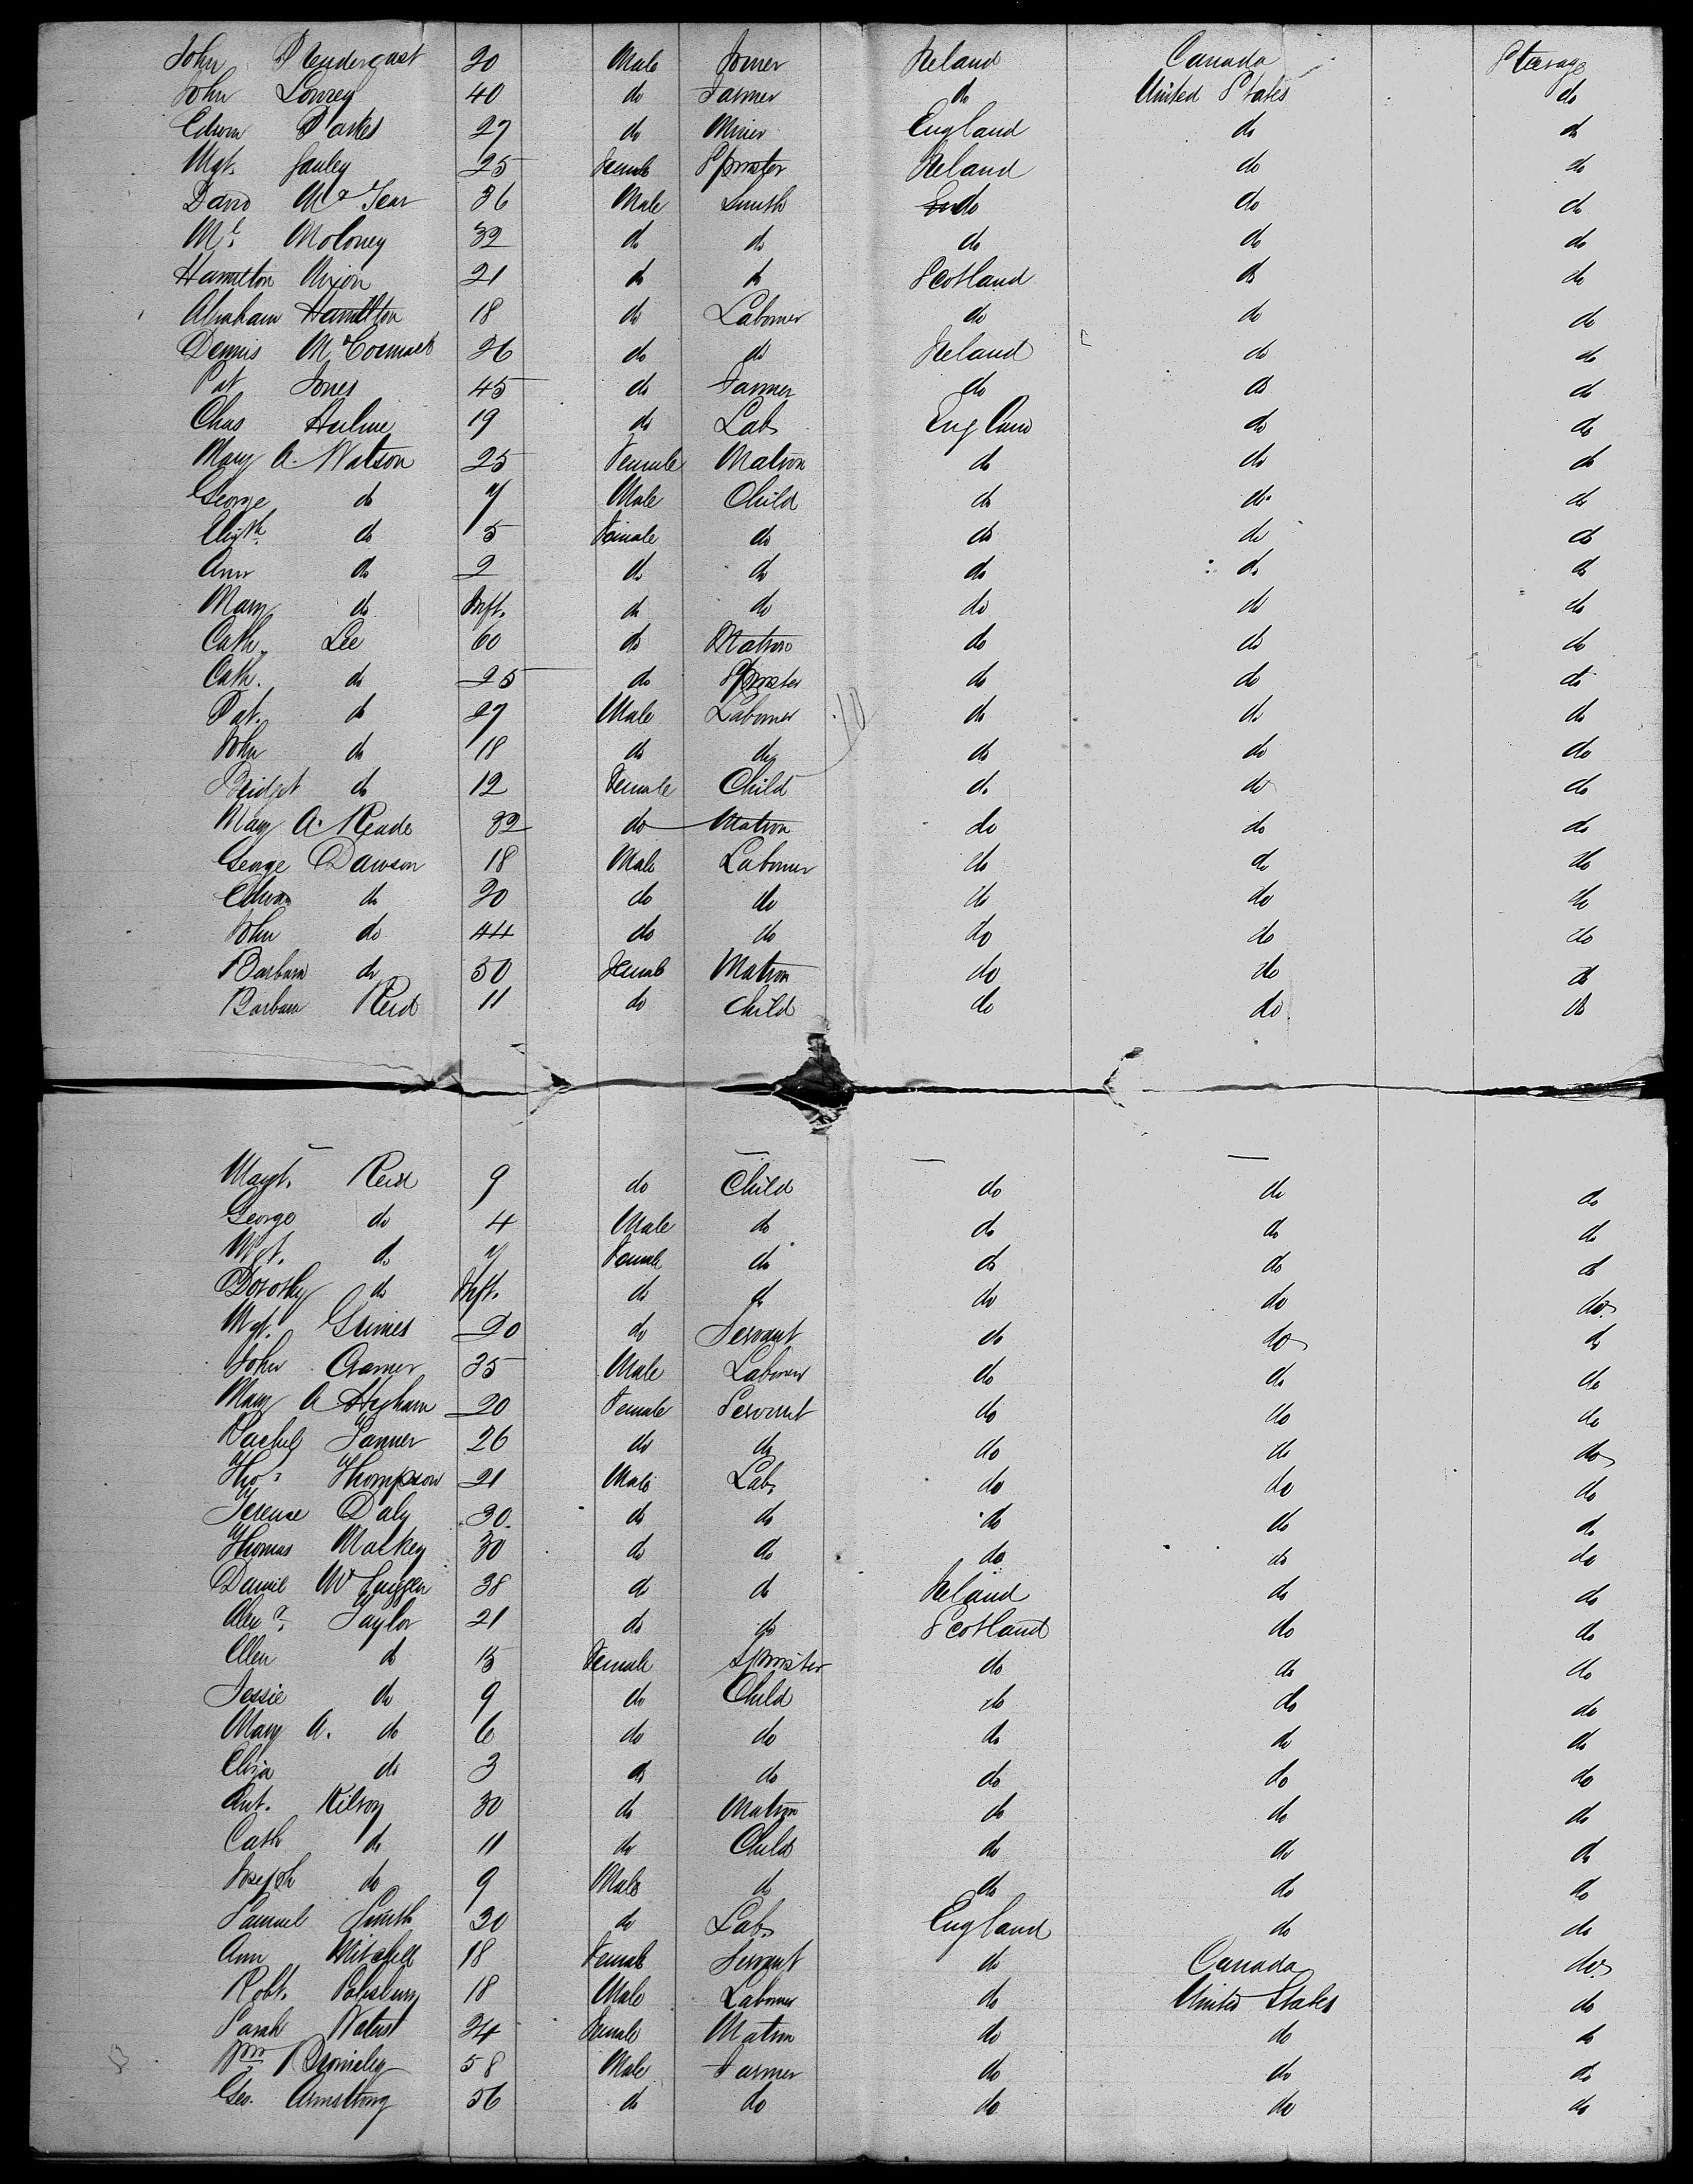 John Prendergast 20 Male Joiner Ireland Canada Steerage
John Lowrey 40 do Farmer do United States do
Edwin Parkes 27 do Miner England do do
Mgt. Gauley 25 Female Spinster Ireland do do
David McGear 36 Male Smith do do do
Ml. Moloney 32 do do do do do
Hamilton Nixon 21 do do Scotland do do
Abraham Hamilton 18 do Laborer do do do
Dennis McCormack 26 do do Ireland do do
Pat Jones 45 do Farmer do do do
Chas Hulme 19 do Lab. England do do
Mary A. Watson 25 Female Matron do do do
George do 7 Male Child do do do
Elizth. do 5 Female do do do do
Ann do 2 do do do do do
Mary do Inft. do do do do do
Cath. Lee 60 do Matron do do do
Cath. do 25 do Spinster do do do
Pat. do 27 Male Laborer do do do
John do 18 do do do do do
Bridget do 12 Female Child do do do
Mary A. Reade 32 do Matron do do do
George Dawson 18 Male Laborer do do do
Edwin do 20 do do do do do
John do 44 do do do do do
Barbara do 50 Female Matron do do do
Barbara Reid 11 do Child do do do
Margt. Reid 9 do Child do do do
George do 4 Male do do do do
Mgt. do 7 Female do do do do
Dorothy do Inft. do do do do do
Mgt. Grimes 20 do Servant do do do
John Cramer 35 Male Laborer do do do
Mary A Higham 20 Female Servant do do do
Rachel Tanner 26 do do do do do
Thos. Thompson 21 Male Lab. do do do
Terence Daly 30 do do do do do
Thomas Mackey 30 do do do do do
Daniel 38 do do Ireland do do
Alexr. Taylor 21 do do Scotland do do
Ellen do 15 Female Spinster do do do
Jessie do 9 do Child do do do
Mary A. do 6 do do do do do
Eliza do 3 do do do do do
Ant. Kilroy 30 do Matron do do do
Cath do 11 do Child do do do
Joseph do 9 Male do do do do
Samuel Smith 30 do Lab. England do do
Ann Mitchell 18 Female Servant do Canada do
Robt. 18 Male Laborer do United States do
Sarah 24 Female Matron do do do
Wm Bromiley 58 Male Farmer do do do
Geo. Armstrong 56 do do do do do